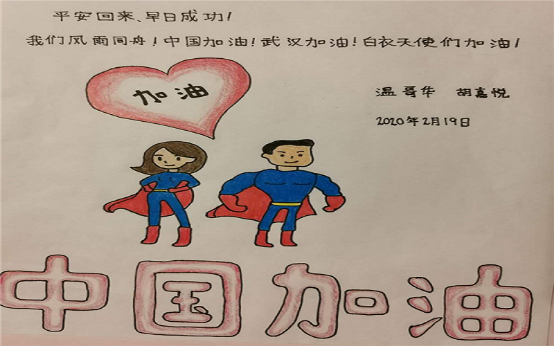 平安回来、早日成功！
我们风雨同舟！中国加油！武汉加油！白衣天使们加油！
加油
温哥华 胡嘉悦
2020年2月19日
中国加油